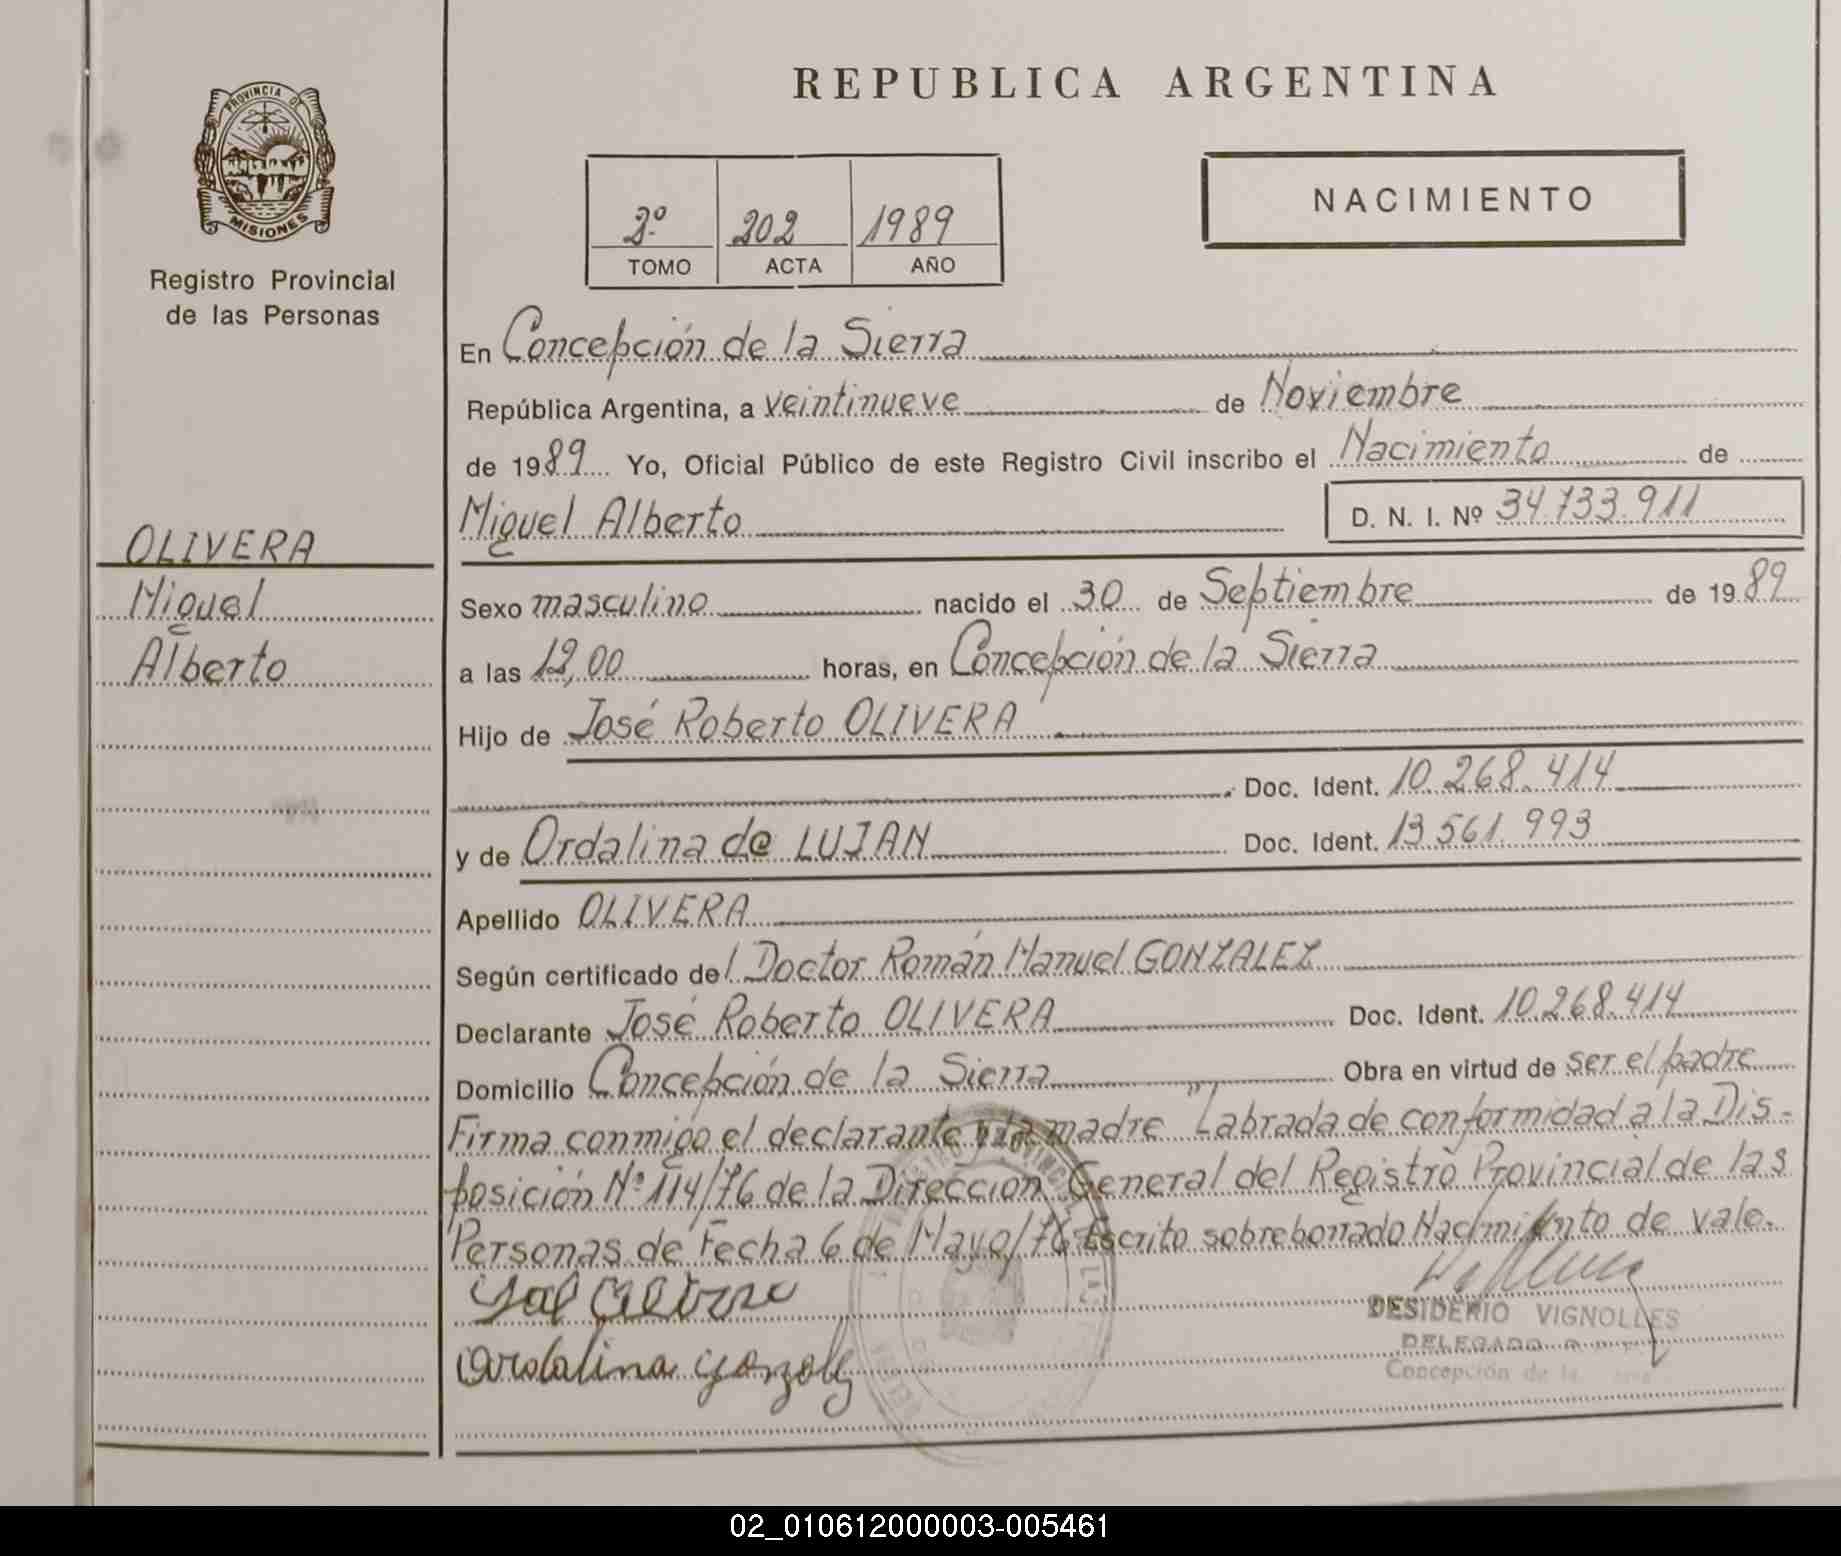 REPUBLICA ARGENTINA
PROVINCIA DE
MISIONES
Registro Provincial
de las Personas
2º 202 1989
TOMO ACTA AÑO
NACIMIENTO
En Concepción de la Sierra
República Argentina, a veintinueve de Noviembre
de 1989 Yo, Oficial Público de este Registro Civil inscribo el Nacimiento de
Miguel Alberto D. N. I. Nº 34.733.911
OLIVERA
Miguel
Alberto
Sexo masculino nacido el 30 de Septiembre de 1989
a las 12,00 horas, en Concepción de la Sierra
Hijo de José Roberto OLIVERA
Doc. Ident. 10.268.414
y de Ordalina de LUJAN Doc. Ident. 13.561.993
Apellido OLIVERA
Según certificado del Doctor Román Manuel GONZALEZ
Declarante José Roberto OLIVERA Doc. Ident. 10.268.414
Domicilio Concepción de la Sierra Obra en virtud de ser el padre
Firma conmigo el declarante y la madre "Labrada de conformidad a la Dis-
posición Nº 114/76 de la Dirección General del Registro Provincial de las
Personas de Fecha 6 de Mayo/76 Escrito sobreborrado Nacimiento de vale.
Ordalina
DESIDERIO VIGNOLLES
DELEGADO
Concepción de la
02_010612000003-005461